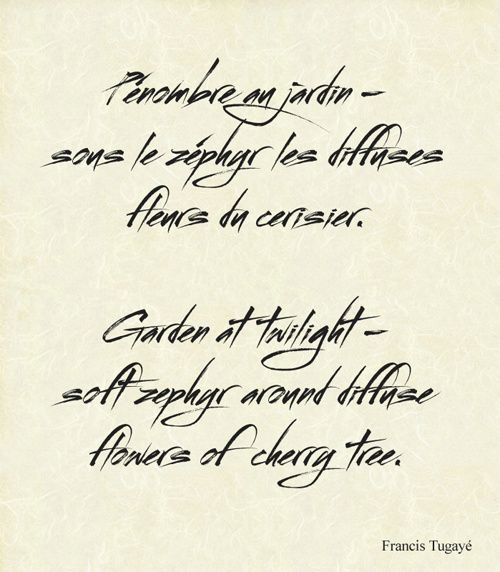 Pénombre au jardin –
sous le zéphyr les diffuses
fleurs du cerisier.
Garden at twilight –
soft zephyr around diffuse
flowers of cherry tree.
Francis Tugayé